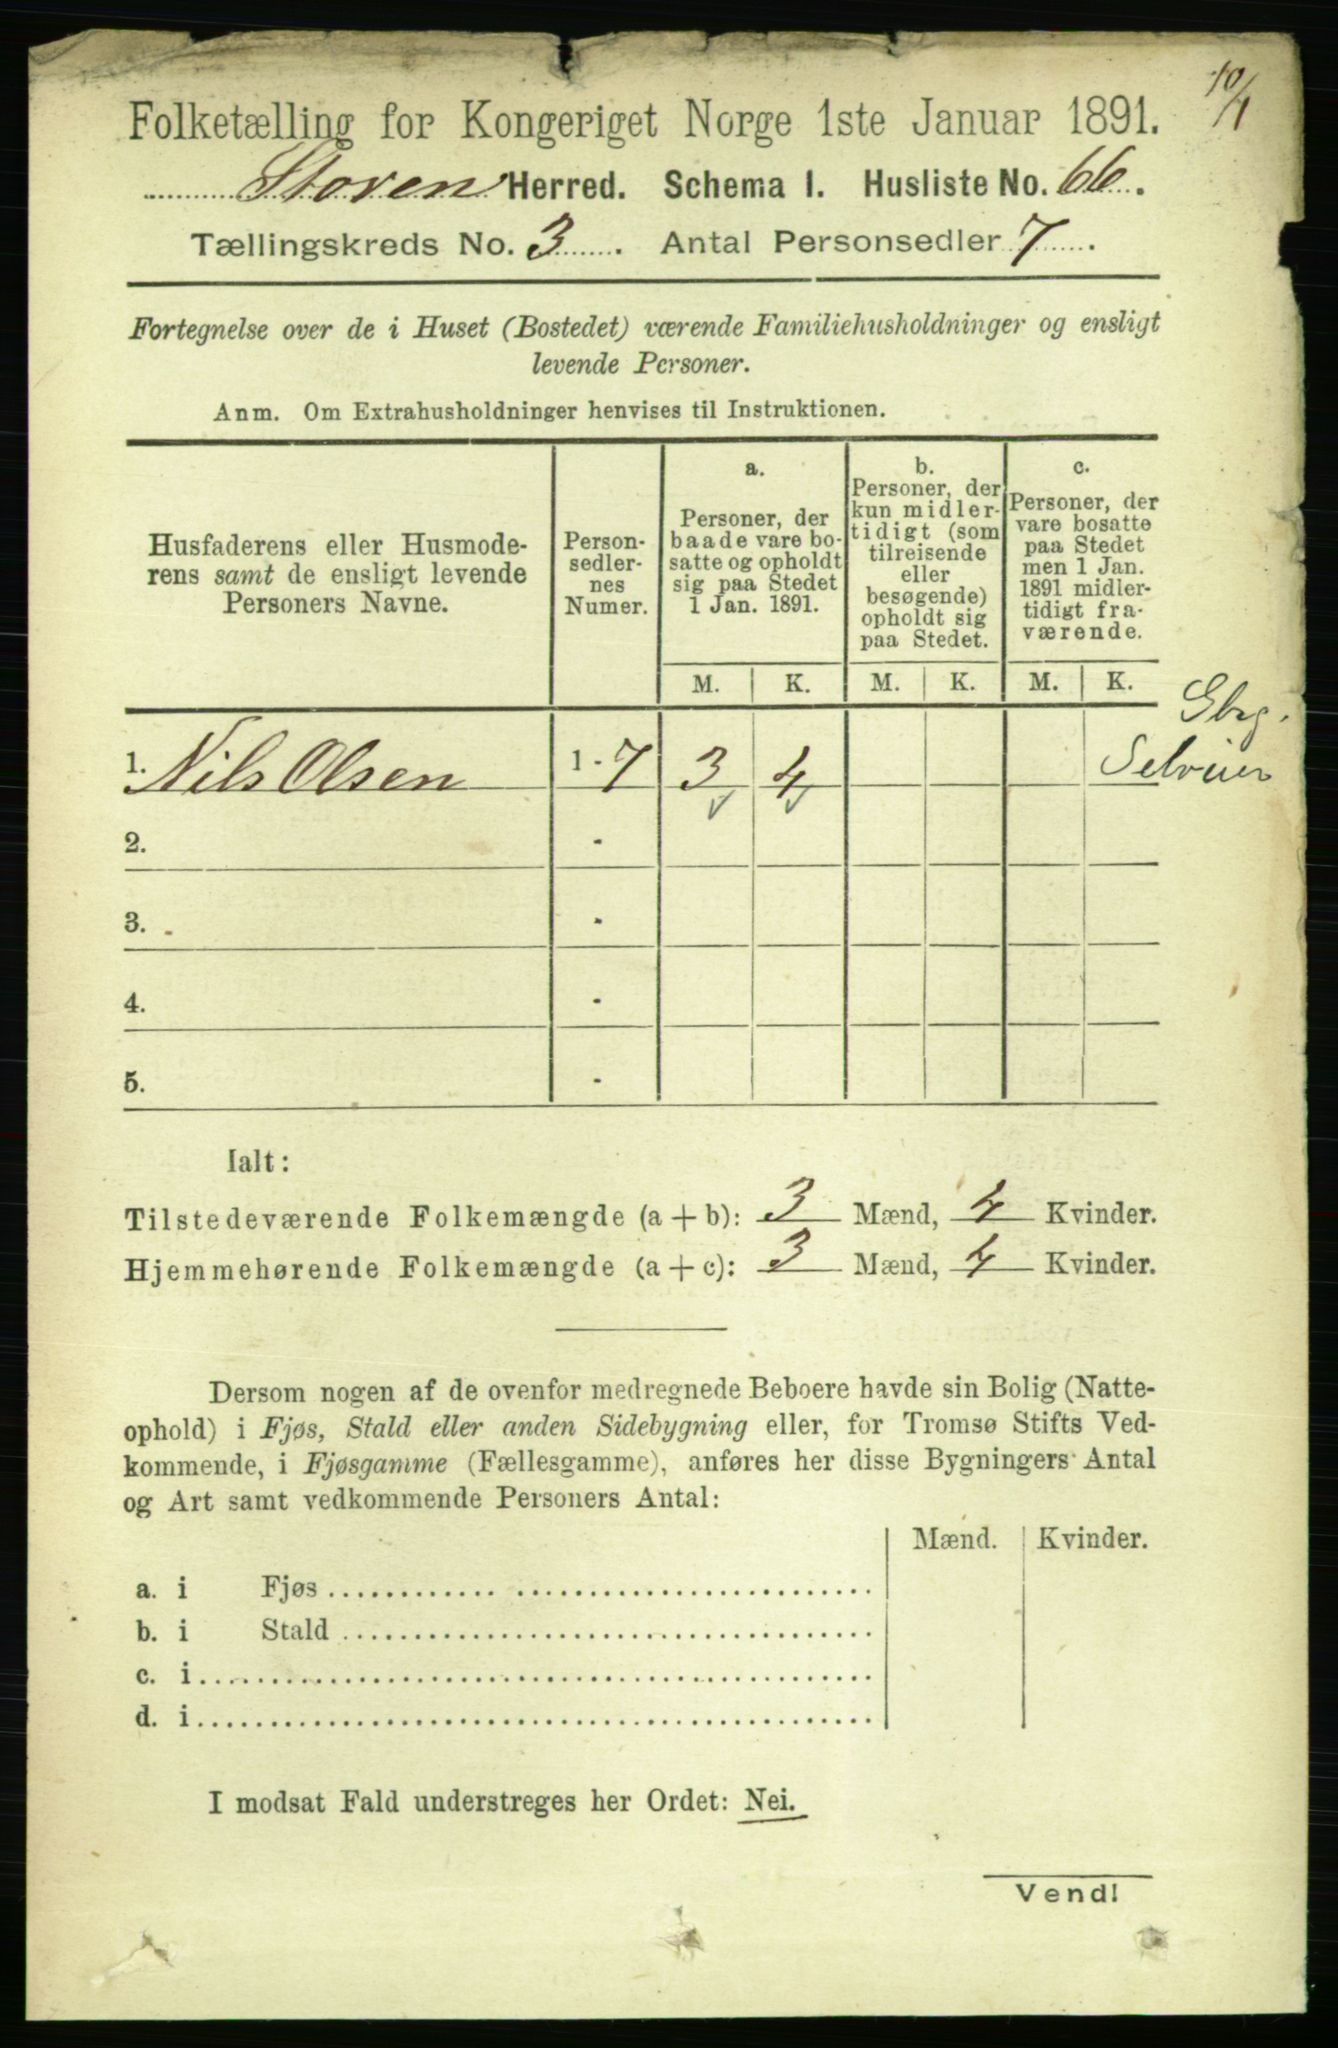 10/1
Folketælling for Kongeriget Norge 1ste Januar 1891.
Støren Herred. Schema I. Husliste No. 66.
Tællingskreds No. 3. Antal Personsedler 7.
Fortegnelse over de i Huset (Bostedet) værende Familiehusholdninger og ensligt
levende Personer.
Anm. Om Extrahusholdninger henvises til Instruktionen.
Husfaderens eller Husmode-
rens samt de ensligt levende
Personers Navne.
Person-
sedler-
nes
Numer.
a.
Personer, der
baade vare bo-
satte og opholdt
sig paa Stedet
1 Jan. 1891.
b.
Personer, der
kun midler-
tidigt (som
tilreisende
eller
besøgende)
opholdt sig
paa Stedet.
c.
Personer, der
vare bosatte
paa Stedet
men 1 Jan.
1891 midler-
tidigt fra-
værende.
M. K. M. K. M. K.
Gbrg.
1. Nils Olsen 1 - 7 3 4 Selveier
2. -
3. -
4. -
5. -
Ialt:
Tilstedeværende Folkemængde (a + b): 3 Mænd, 4 Kvinder.
Hjemmehørende Folkemængde (a + c): 3 Mænd, 4 Kvinder.
Dersom nogen af de ovenfor medregnede Beboere havde sin Bolig (Natte-
ophold) i Fjøs, Stald eller anden Sidebygning eller, for Tromsø Stifts Ved-
kommende, i Fjøsgamme (Fællesgamme), anføres her disse Bygningers Antal
og Art samt vedkommende Personers Antal:
Mænd. Kvinder.
a. i Fjøs
b. i Stald
c. i
d. i
I modsat Fald understreges her Ordet: Nei.
Vend!